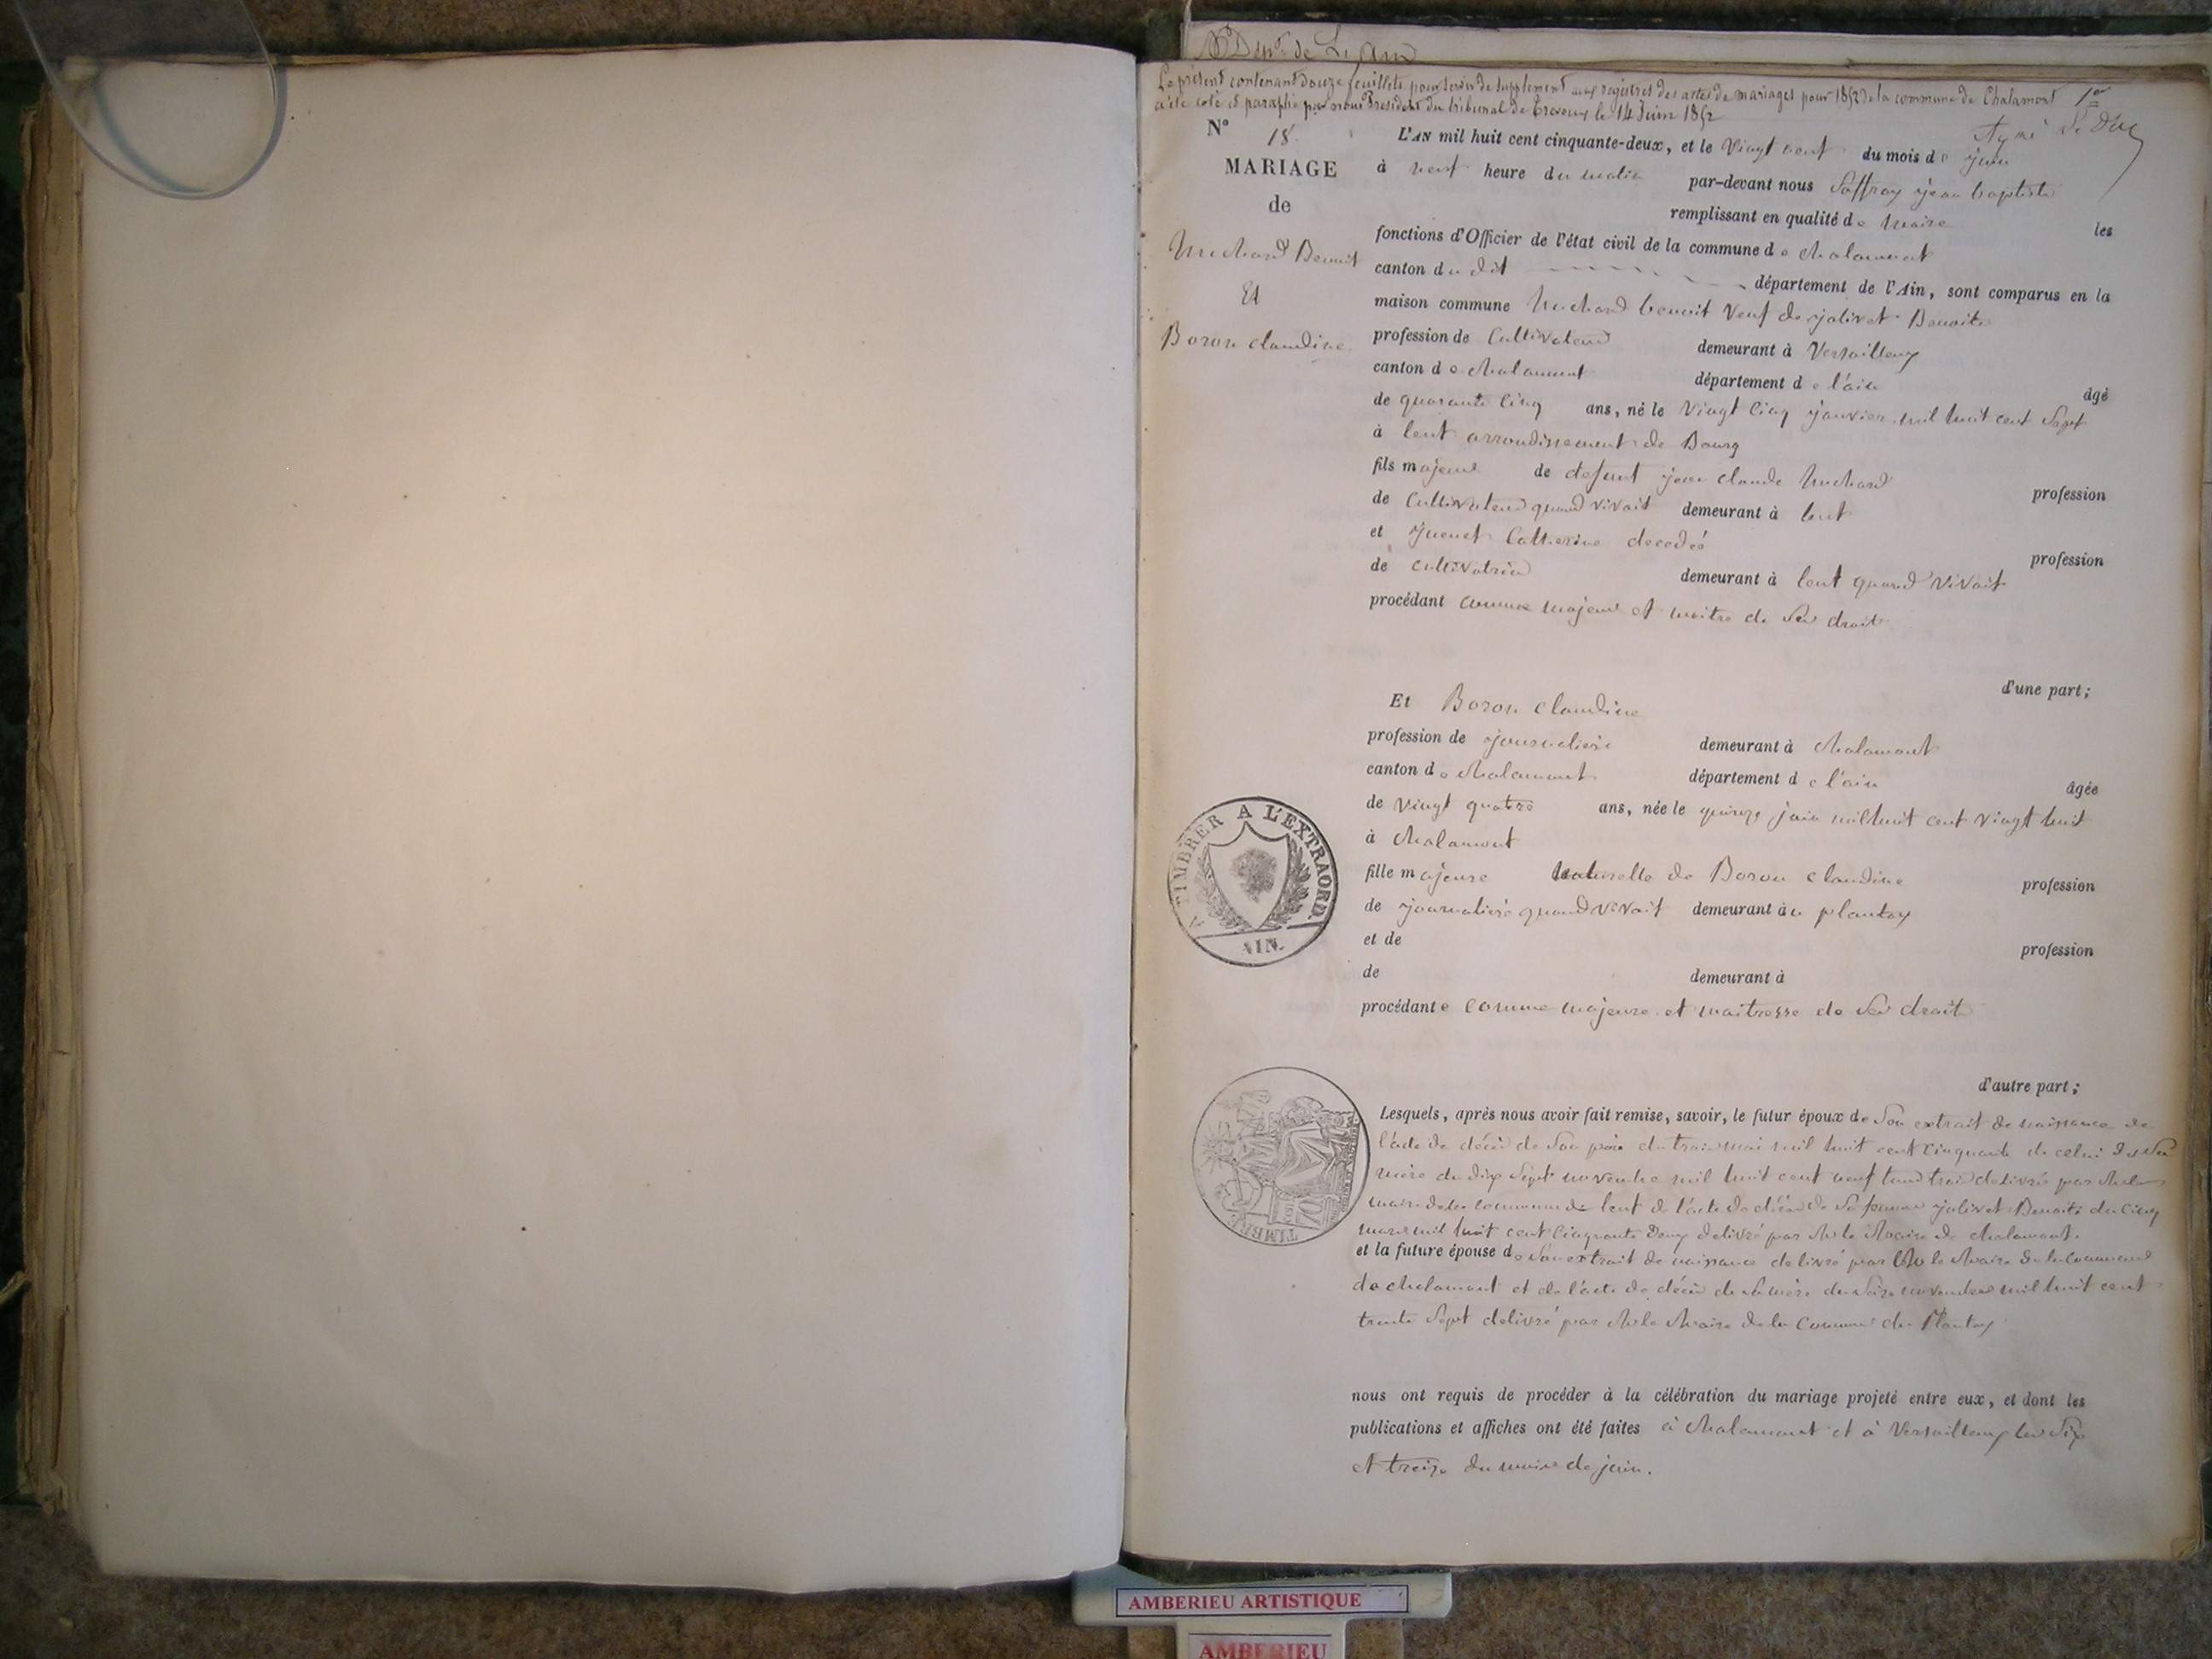 Dépt. de L'Ain
Le présent contenant douze feuillets pour servir de supplément aux registres des actes de mariages pour 1852 de la commune de Chalamont 1er
a été coté et paraphé par nous Président du tribunal de Trévoux le 14 Juin 1852
N° 18.
MARIAGE
de
Michard Benoit
Et
Boron claudine
L'AN mil huit cent cinquante-deux, et le vingt neuf du mois de juin
à neuf heure du matin par-devant nous Saffray jean baptiste
remplissant en qualité de maire les
fonctions d'Officier de l'état civil de la commune de chalamont
canton du dit département de l'Ain, sont comparus en la
maison commune Michard benoit veuf de jolivet Benoite
profession de Cultivateur demeurant à Versailleux
canton de chalamont département de l'ain âgé
de quarante cinq ans, né le vingt cinq janvier mil huit cent sept
à lent arrondissement de Bourg
fils majeur de defunt jean claude Michard profession
de Cultivateur quand vivait demeurant à lent
et Catherine decedé profession
de cultivatrice demeurant à lent quand vivait
procédant comme majeur et maitre de ses droit
d'une part;
Et Boron claudine
profession de journalière demeurant à chalamont
canton de chalamont département de l'ain âgée
de vingt quatre ans, née le quinze juin mil huit cent vingt huit
à chalamont
fille majeure naturelle de Boron claudine profession
de journalière quand vivait demeurant au plantay
et de profession
de demeurant à
procédante comme majeure et maitresse de ses droit
d'autre part;
Lesquels, après nous avoir fait remise, savoir, le futur époux de son extrait de naissance de
l'acte de décès de son père du trois mai mil huit cent cinquante de celui de sa
mère du dix sept novembre mil huit cent neuf délivré par
maire de la commune de lent de l'acte de décès de sa femme jolivet Benoite du cinq
mars mil huit cent cinquante deux delivré par Mr le Maire de chalamont.
et la future épouse de son extrait de naissance delivré par Mr le Maire de la commune
de chalamont et de l'acte de décès de sa mère du novembre mil huit cent
trente sept delivré par Mr le Maire de la commune du Plantay
nous ont requis de procéder à la célébration du mariage projeté entre eux, et dont les
publications et affiches ont été faites à chalamont et à Versailleux les six
et treize du mois de juin.
A TIMBRER A L'EXTRAORD.
AIN.
TIMBRE
AMBERIEU ARTISTIQUE
AMBERIEU